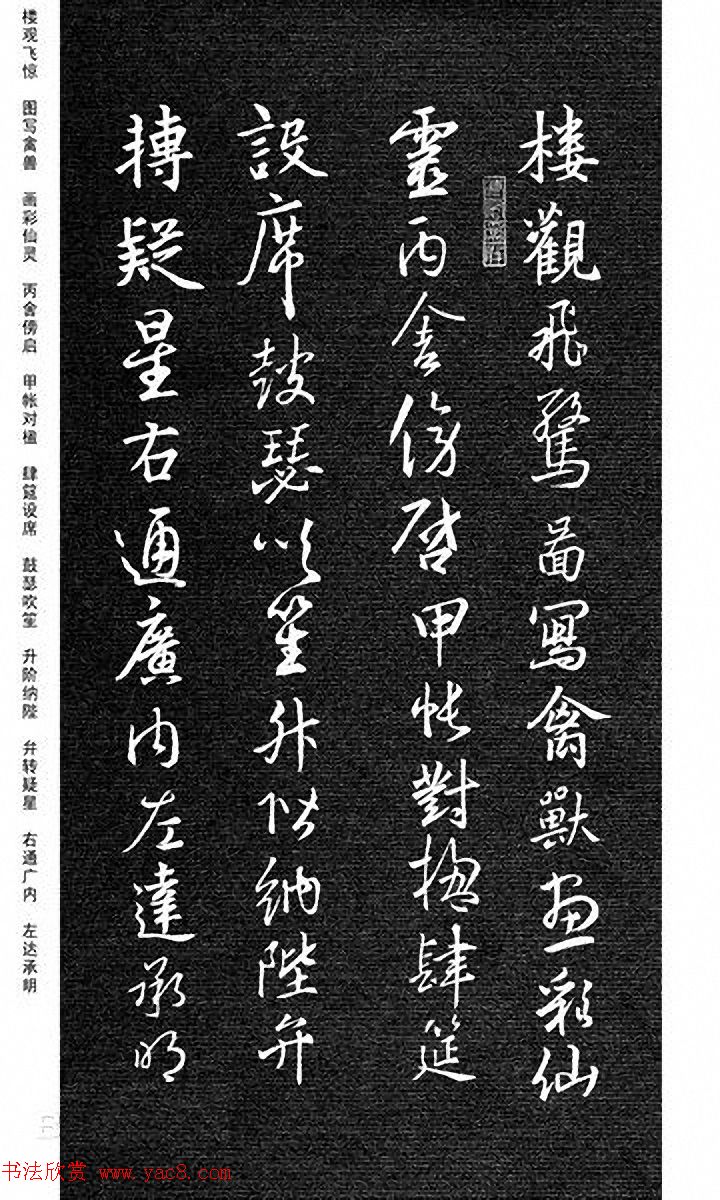 樓觀飛驚啚寫禽獸畫彩仙
靈丙舍傍啓甲帳對楹肆筵
設席鼓瑟吹笙升階納陛弁
轉疑星右通廣内左達承明
楼观飞惊 图写禽兽 画彩仙灵 丙舍傍启 甲帐对楹 肆筵设席 鼓瑟吹笙 升阶纳陛 弁转疑星 右通广内 左达承明
书法欣赏 www.yac8.com